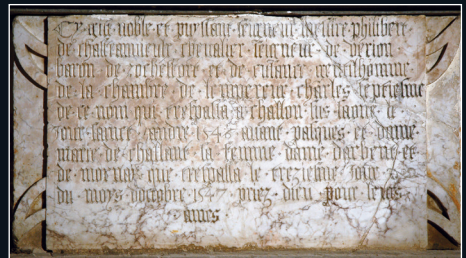 Cy gist noble et puyssant seigneur messire philibert
de chasteauvieulx chevalier seigneur de verion
baron de rochefort et de gentilhomme
de la chambre de lempereur charles
de ce nom que trespassa a challon sus saone le
jour sainct andre 1542 avant pasques et dame
marie de challant sa femme dame darbent et
de mornay que trespassa le trezieme jour
du moys doctobre 1547 priez dieu pour leurs
ames